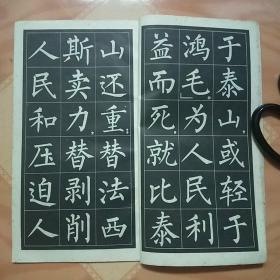 于泰山,或轻于
鸿毛。为人民利
益而死,就比泰
山还重;替法西
斯卖力,替剥削
人民和压迫人